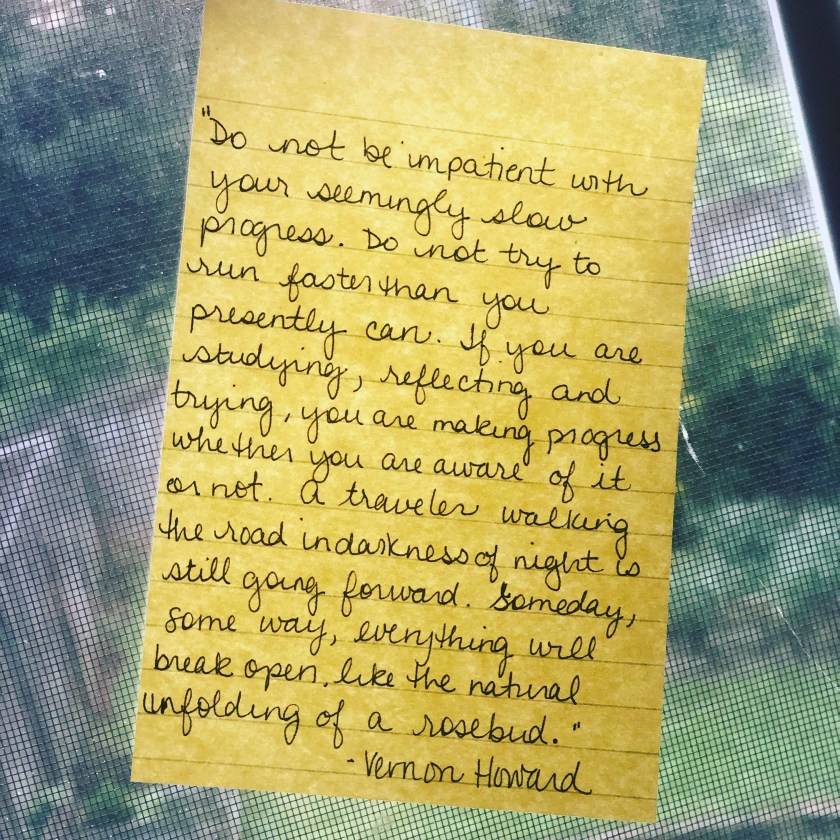 "Do not be impatient with
your seemingly slow
progress. Do not try to
run faster than you
presently can. If you are
studying, reflecting and
trying, you are making progress
whether you are aware of it
or not. A traveler walking
the road in darkness of night is
still going forward. Someday,
some way, everything will
break open, like the natural
unfolding of a rosebud."
- Vernon Howard